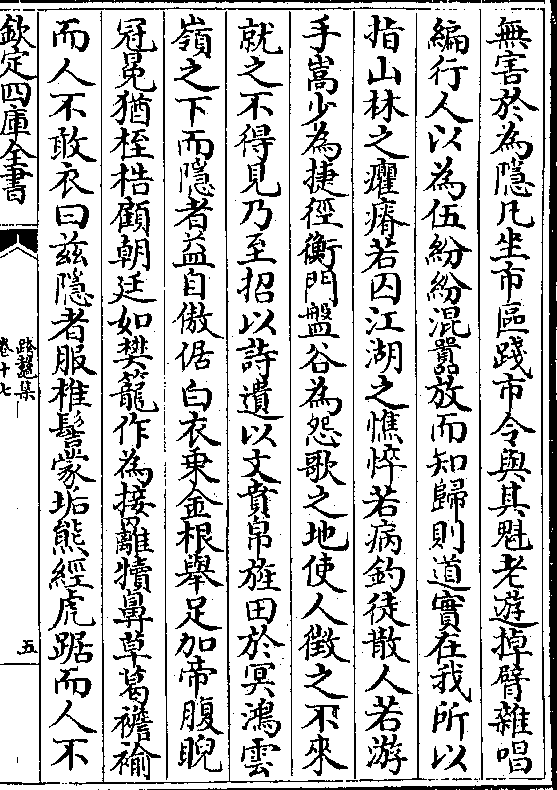 無害於為隱凡坐市區踐市令與其魁老遊掉臂雜唱
編行人以為伍紛紛混囂放而知歸則道實在我所以
指山林之癯瘠若囚江湖之憔悴若病釣徒散人若游
手嵩少為捷徑衡門盤谷為怨歌之地使人徴之不來
就之不得見乃至招以詩遺以文賁帛旌田於冥鴻雲
嶺之下而隱者益自傲倨白衣乗金根舉足加帝腹睨
冠冕猶桎梏顧朝廷如樊籠作為接䍦犢鼻草葛襜褕
而人不敢衣曰兹隱者服椎髻蒙垢熊經虎踞而人不
欽定四庫全書
卷十七
五